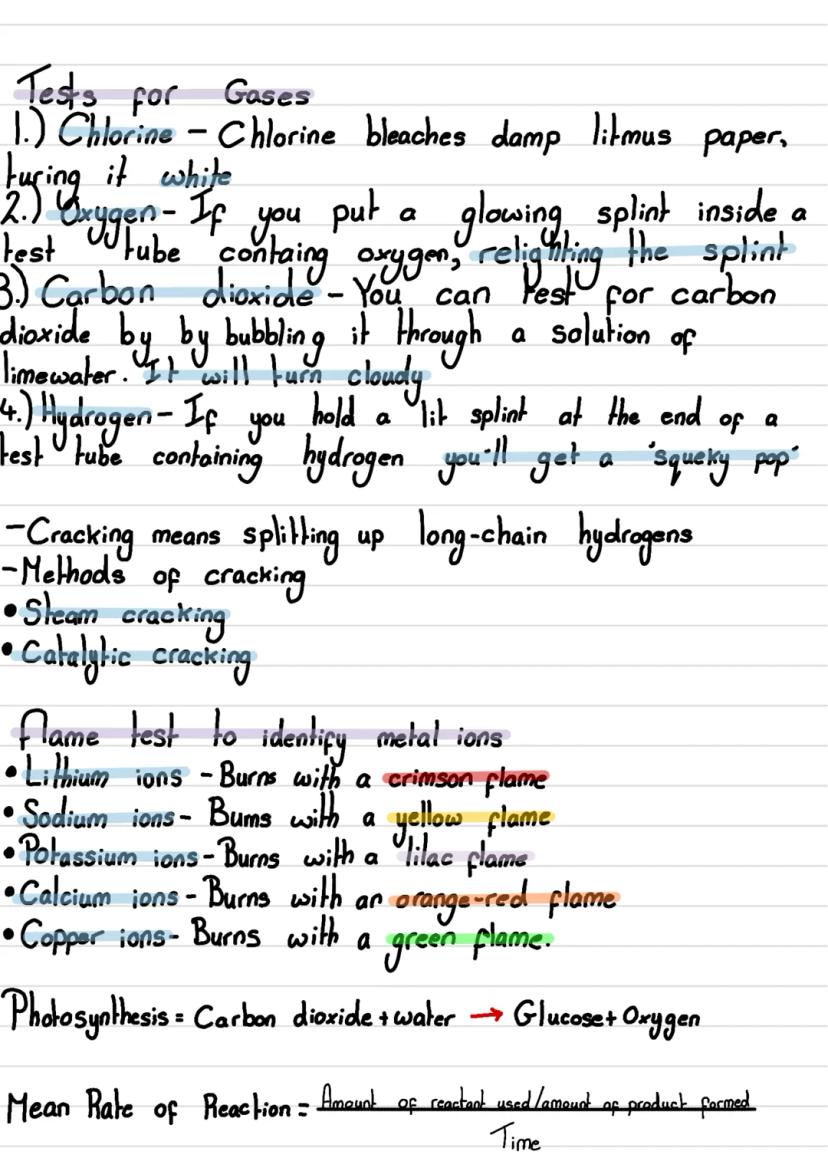 Tests for Gases
1.) Chlorine - Chlorine bleaches damp litmus paper,
turing it white
2.) Oxygen - If you put a glowing splint inside a
test tube containg oxygen, relighting the splint
3.) Carbon dioxide - You can test for carbon
dioxide by by bubbling it through a solution of
limewater. It will turn cloudy
4.) Hydrogen - If you hold a lit splint at the end of a
test tube containing hydrogen you'll get a 'squeky pop'
- Cracking means splitting up long-chain hydrogens
- Methods of cracking
• Steam cracking
• Catalytic cracking
Flame test to identify metal ions
• Lithium ions - Burns with a crimson flame
• Sodium ions - Burns with a yellow flame
• Potassium ions - Burns with a lilac flame
• Calcium ions - Burns with an orange-red flame
• Copper ions - Burns with a green flame.
Photosynthesis = Carbon dioxide + water → Glucose + Oxygen
Mean Rate of Reaction = Amount of reactant used/amount of product formed
Time